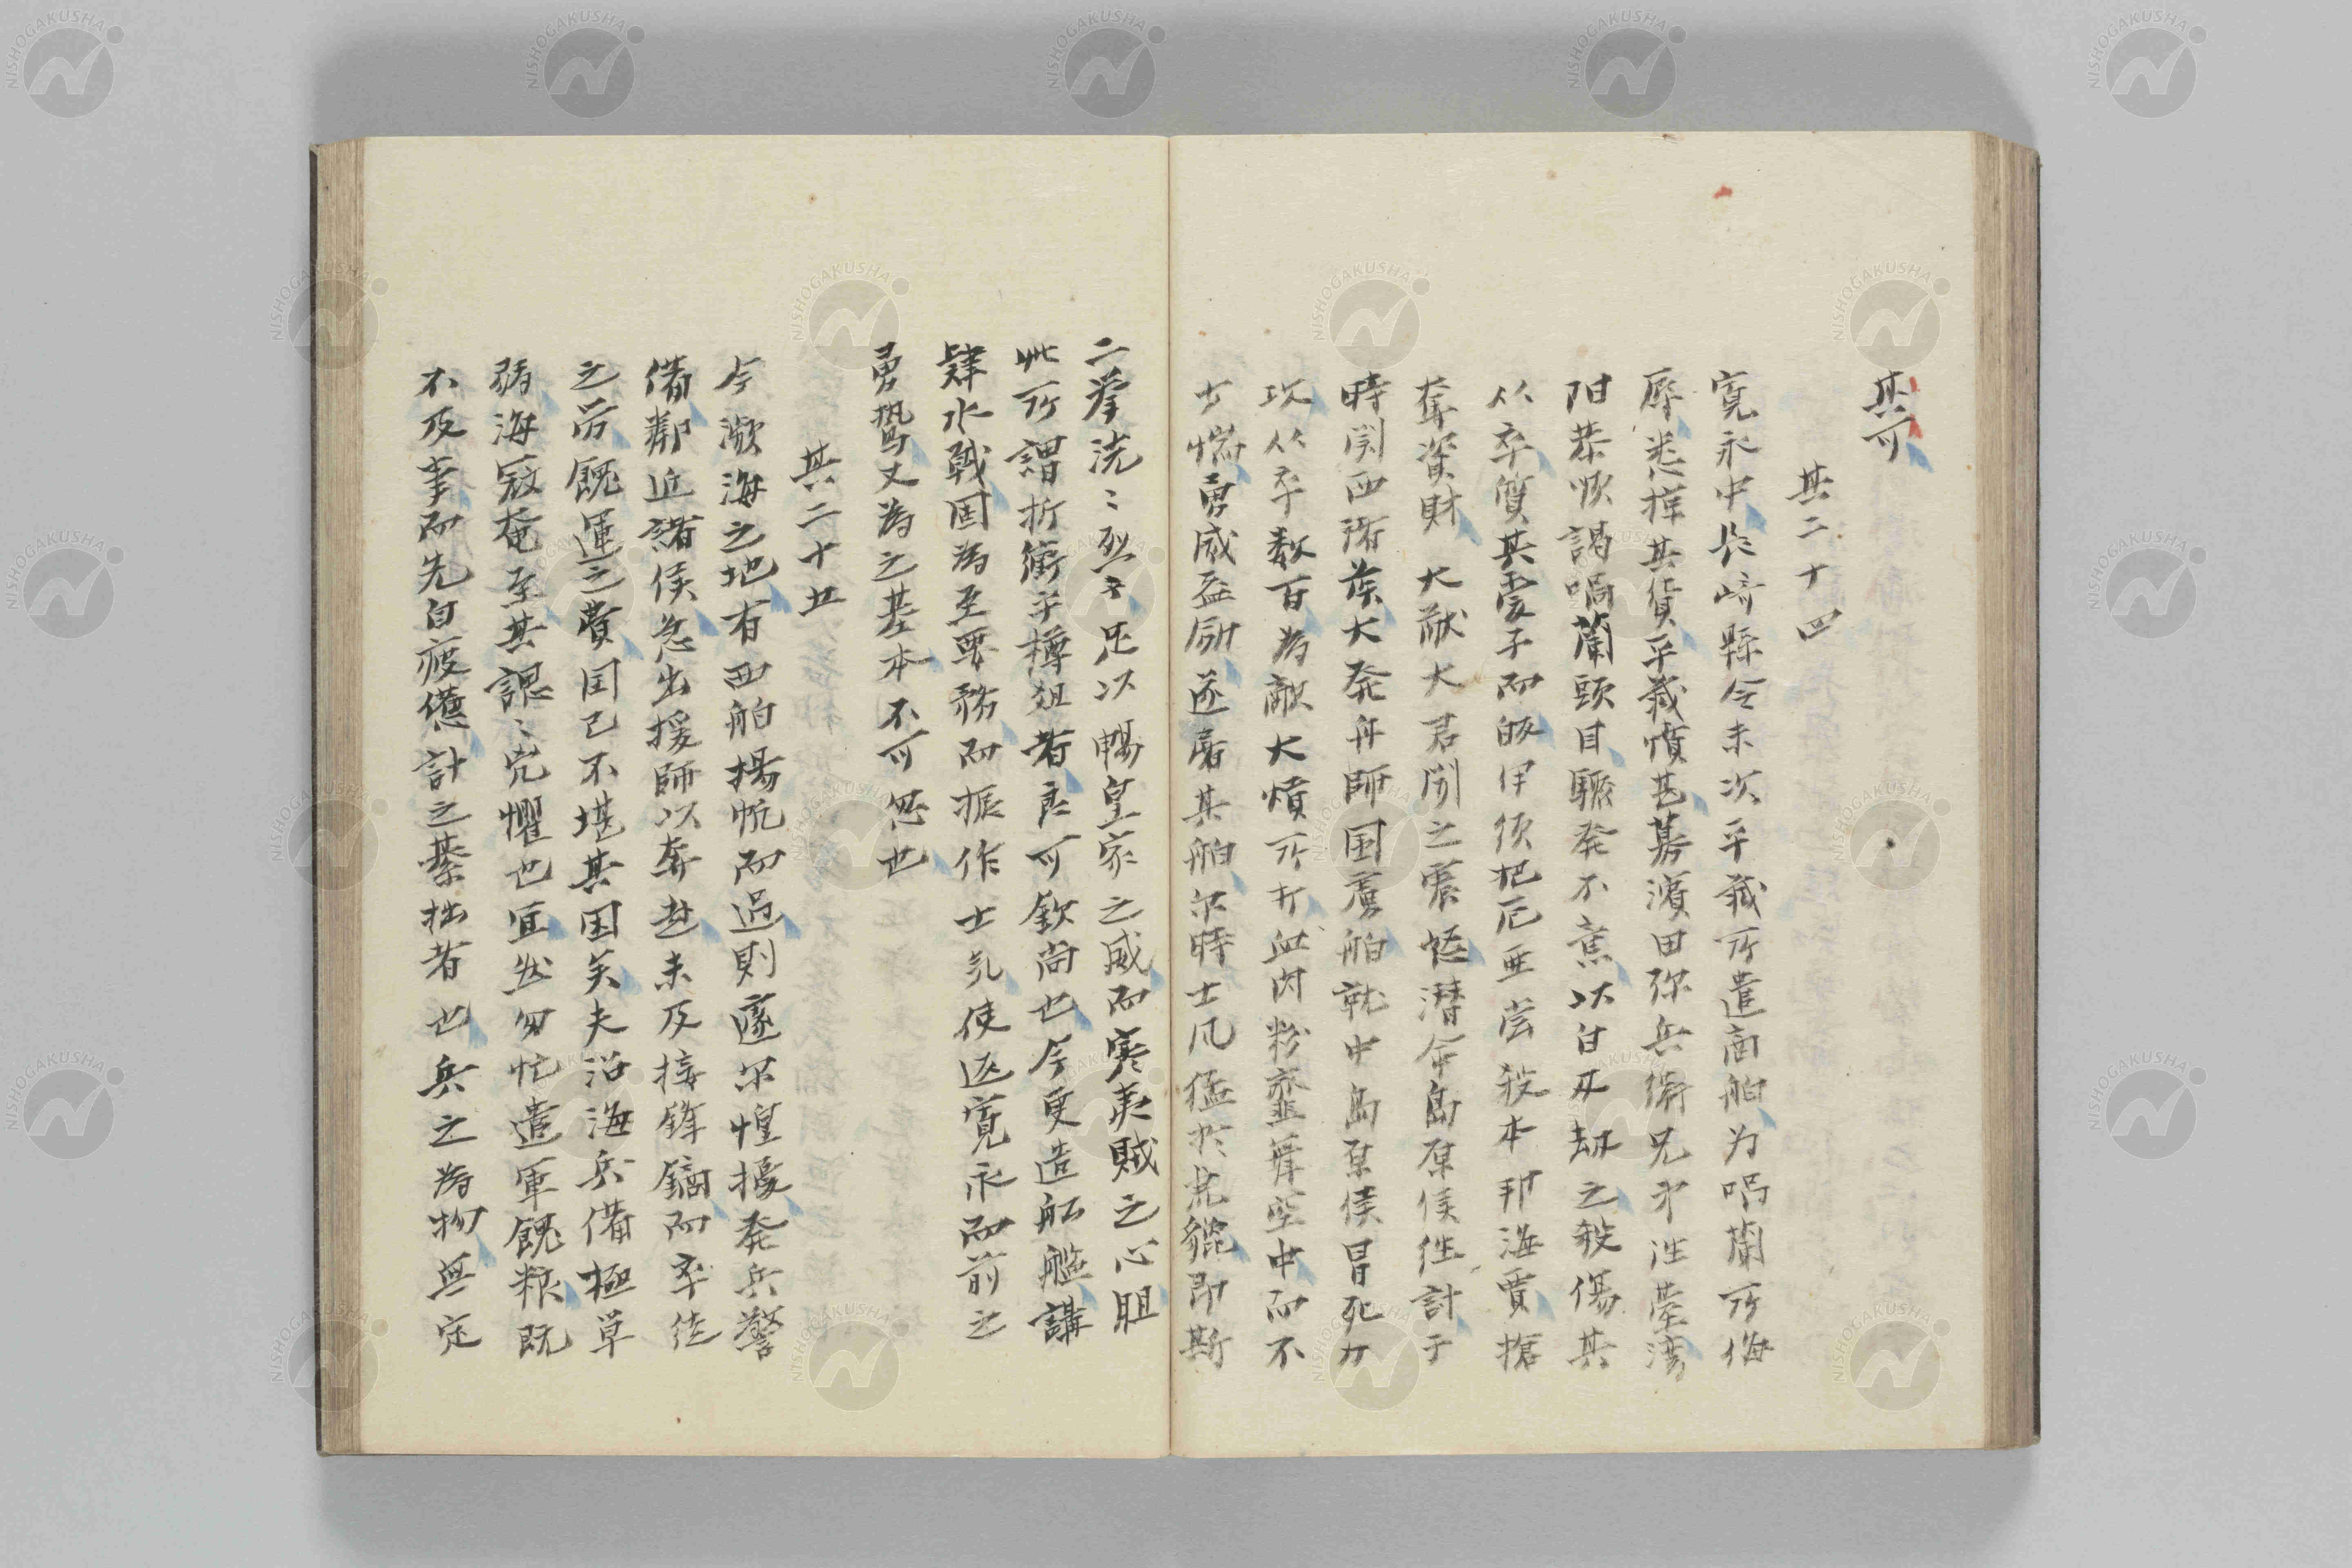 其可
其二十四
寛永中長崎縣令末次平蔵所遣商舶为喎蘭所侮
辱悉搾其貨平蔵憤甚募濵田弥兵衛兄弟往臺湾
阳恭順謁喎蘭頭目驟発不意以白刃劫之殺傷其
从卒質其愛子而皈伊须把尼亜嘗殺本邦海賈搶
奪資財大猷大君聞之震怒潜命島原侯往計于
時関西諸藩大発舟師困蕃舶就中島原侯冒死力
攻从卒数百為敵大熕所打血肉粉虀舞空中而不
少惴勇威益励遂屠其舶尔時士风猛於虎貔即斯
二挙洗々烈々足以暢皇家之威而寒夷賊之心胆
此所謂折衝乎樽俎者良可欽尚也今更造舩艦講
肄水戦固為至要務而振作士気使返寛永而前之
勇鷙又為之基本不可忽也
其二十五
今瀕海之地有西舶揚帆而過則遽尔惶擾発兵警
備鄰近諸侯忽出援師以奔赴未及接鋒鏑而卒徒
之労餽運之費国已不堪其困矣夫沿海兵備極单
弱海寇奄至其諰々兇懼也宜然匆忙遣軍餽粮既
不及事而先自疲憊計之綦拙者也兵之為物無定